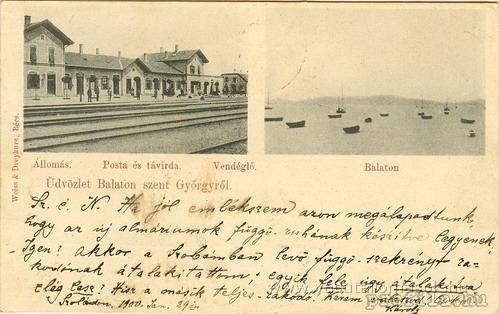 Weiss & Dreykurs, Bécs.
Állomás. Posta és távirda. Vendéglő. Balaton
Üdvözlet Balaton szent Györgyről.
Sz. é. N. Ha jól emlékszem azon megállapodtunk,
hogy az új almáriumok függő ruhának készítve legyenek.
Igen? akkor a szobámban levő függő szekrényt ra-
kodónak átalakítattom; egyik fele így átalakítva
elég lesz? Hisz a másik teljes rakodó. Kérem
Károly
1900. Jan.